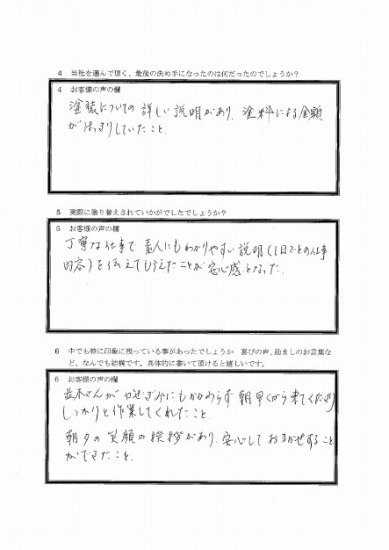 4 当社を選んで頂く、最後の決め手になったのは何だったのでしょうか?
4 お客様の声の欄
塗装についての詳しい説明があり、塗料による金額
がはっきりしていたこと。
5 実際に塗り替えされていかがでしたでしょうか?
5 お客様の声の欄
丁寧な仕事で素人にもわかりやすい説明(1日ごとの仕事
内容)を伝えてもらえたことが安心感となった。
6 中でも特に印象に残っている事があったでしょうか 喜びの声、励ましのお言葉な
ど、なんでも結構です。具体的に書いて頂けると嬉しいです。
6 お客様の声の欄
並木さんがかぜぎみにもかかわらず朝早くから来てくださり
しっかりと作業してくれたこと。
朝夕の笑顔の挨拶があり、安心しておまかせすること
ができたこと。